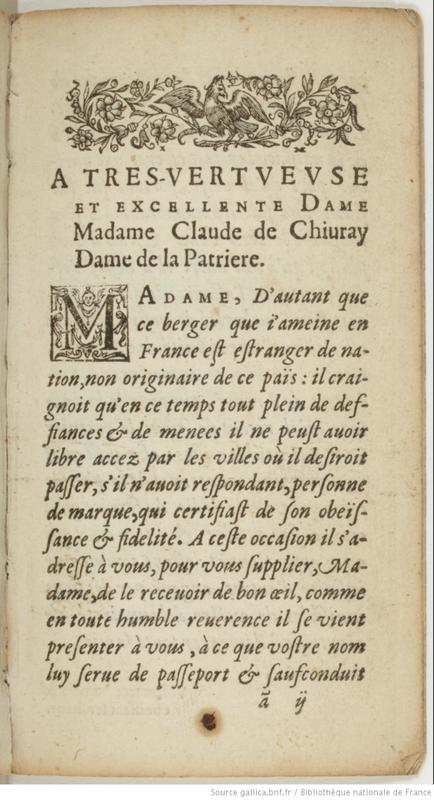 A TRES-VERTVEVSE
ET EXCELLENTE DAME
Madame Claude de Chiuray
Dame de la Patriere.
MADAME, D'autant que
ce berger que i'ameine en
France eſt eſtranger de na-
tion, non originaire de ce païs : il crai-
gnoit qu'en ce temps tout plein de def-
fiances & de menees il ne peuſt auoir
libre accez par les villes où il deſiroit
paſſer, s'il n'auoit reſpondant, perſonne
de marque, qui certifiaſt de ſon obeïſ-
ſance & fidelité. A ceſte occaſion il s'a-
dreſſe à vous, pour vous ſupplier, Ma-
dame, de le receuoir de bon œil, comme
en toute humble reuerence il ſe vient
preſenter à vous, à ce que voſtre nom
luy ſerue de paſſeport & ſaufconduit
ã ij
Source gallica.bnf.fr / Bibliothèque nationale de France